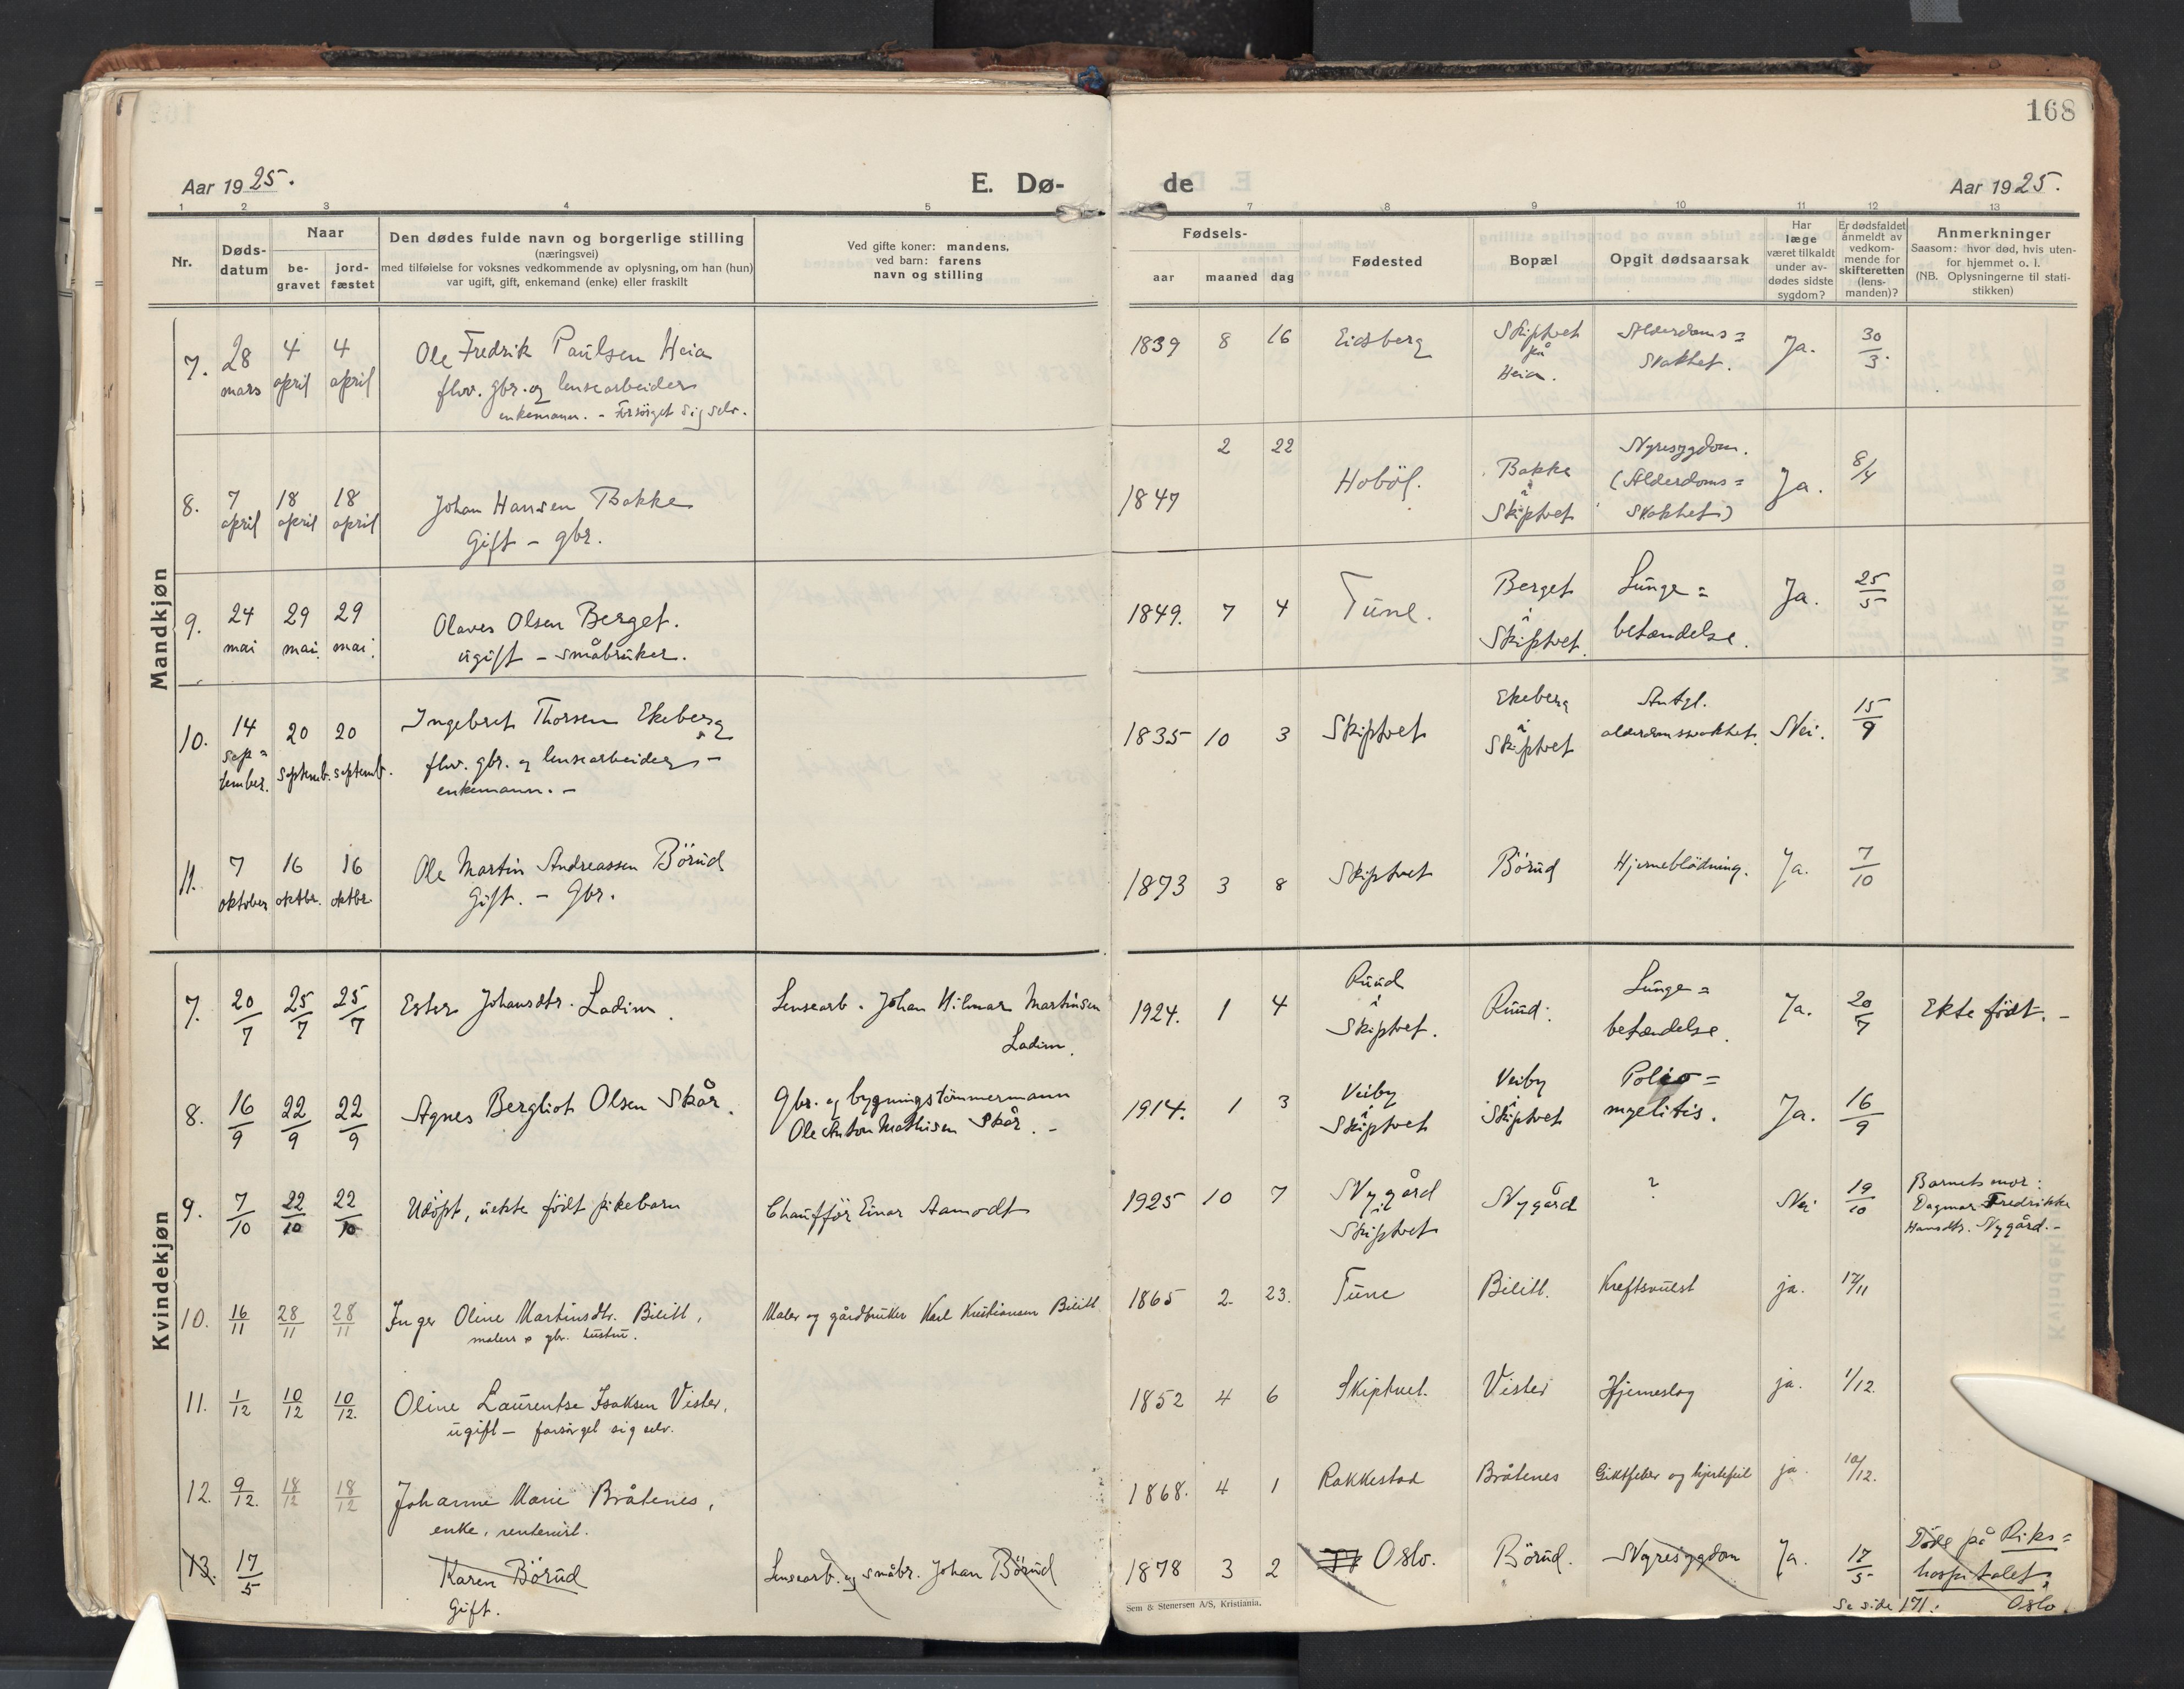 168
Aar 1925.
E. Dø-
de
Aar 1925.
1 2 3 4 5 7 8 9 10 11 12 13
Nr.
Døds-
datum
Naar
be-
gravet
jord-
fæstet
Den dødes fulde navn og borgerlige stilling
(næringsvei)
med tilføielse for voksnes vedkommende av oplysning, om han (hun)
var ugift, gift, enkemand (enke) eller fraskilt
Ved gifte koner: mandens,
ved barn: farens
navn og stilling
Fødsels-
aar maaned dag
Fødested
Bopæl
Opgit dødsaarsak
Har
læge
været tilkaldt
under av-
dødes sidste
sygdom?
Er dødsfaldet
anmeldt av
vedkom-
mende for
skifteretten
(lens-
manden)?
Anmerkninger
Saasom: hvor død, hvis uten-
for hjemmet o. l.
(NB. Oplysningerne til stati-
stikken)
Mandkjøn
7. 28 mars 4 april 4 april
Ole Fredrik Paulsen Heia
fhv. gbr. og lensearbeider
enkemann. - Forsörget sig selv.
1839 8 16 Eidsberg
Skiptvet
på
Heia.
Alderdoms=
svakhet.
Ja. 30/3.
8. 7 april 18 april 18 april
Johan Hansen Bakke
Gift - gbr.
1847 2 22 Hoböl.
Bakke
i
Skiptvet
Nyresygdom.
(Alderdoms=
svakhet)
Ja. 8/4
9. 24 mai 29 mai. 29 mai.
Olaves Olsen Berget.
ugift - småbruker.
1849. 7 4 Tune.
Berget
i
Skiptvet.
Lunge=
betændelse.
Ja. 25/5
10. 14 sep=
tember. 20 septemb. 20 septemb.
Ingebret Thorsen Ekeberg
fhv. gbr. og lensearbeider -
enkemann. -
1835 10 3 Skiptvet
Ekeberg
i
Skiptvet
Antgl.
alderdomssvakhet.
Nei. 15/9
11. 7 oktober 16 oktbr. 16 oktbr.
Ole Martin Andreassen Börud
Gift. - Gbr.
1873 3 8 Skiptvet Börud Hjerneblödning. Ja. 7/10
Kvindekjøn
7. 20/7 25/7 25/7 Ester Johansdtr. Ladim.
Lensearb. Johan Hilmar Martinsen
Ladim.
1924. 1 4
Ruud
i
Skiptvet.
Ruud.
Lunge=
betændelse.
Ja. 20/7 Ekte födt. -
8. 16/9 22/9 22/9 Agnes Bergliot Olsen Skår.
Gbr. og bygningstömmermann
Ole Anton Mathisen Skår. -
1914. 1 3
Veiby
i
Skiptvet
Veiby
i
Skiptvet
Polio=
myelitis.
Ja. 16/9
9. 7/10 22/10 22/10 Udöpt, uekte födt pikebarn
Chaufför Einar Aamodt
1925 10 7
Nygård
i
Skiptvet
Nygård ? Nei 19/10
Barnets mor:
Dagmar Fredrikke
Hansdtr. Nygård. -
10. 16/11 28/11 28/11 Inger Oline Martinsdtr. Bilitt,
malers & gbr. hustru.
Maler og gårdbruker Karl Kristiansen Bilitt.
1865 2. 23. Tune Bilitt. Kreftsvulst ja. 17/11
11. 1/12 10/12 10/12. Oline Laurentse Isaksen Vister,
ugift - forsörget sig selv.
1852 4 6 Skiptvet. Vister Hjerneslag ja. 1/12.
12. 9/12. 18/12 18/12 Johanne Marie Bråtenes,
enke, rentenist.
1868. 4 1 Rakkestad Bråtenes Giktfeber og hjertefeil ja. 10/12.
13. 17/5 Karen Börud
Gift.
Lensearb. og småbr. Johan Börud
1878 3 2 Oslo. Börud. Nyresygdom Ja. 17/5
Döde på Riks=
hospitalet,
Oslo.
Se side 171.
Sem & Stenersen A/S, Kristiania.